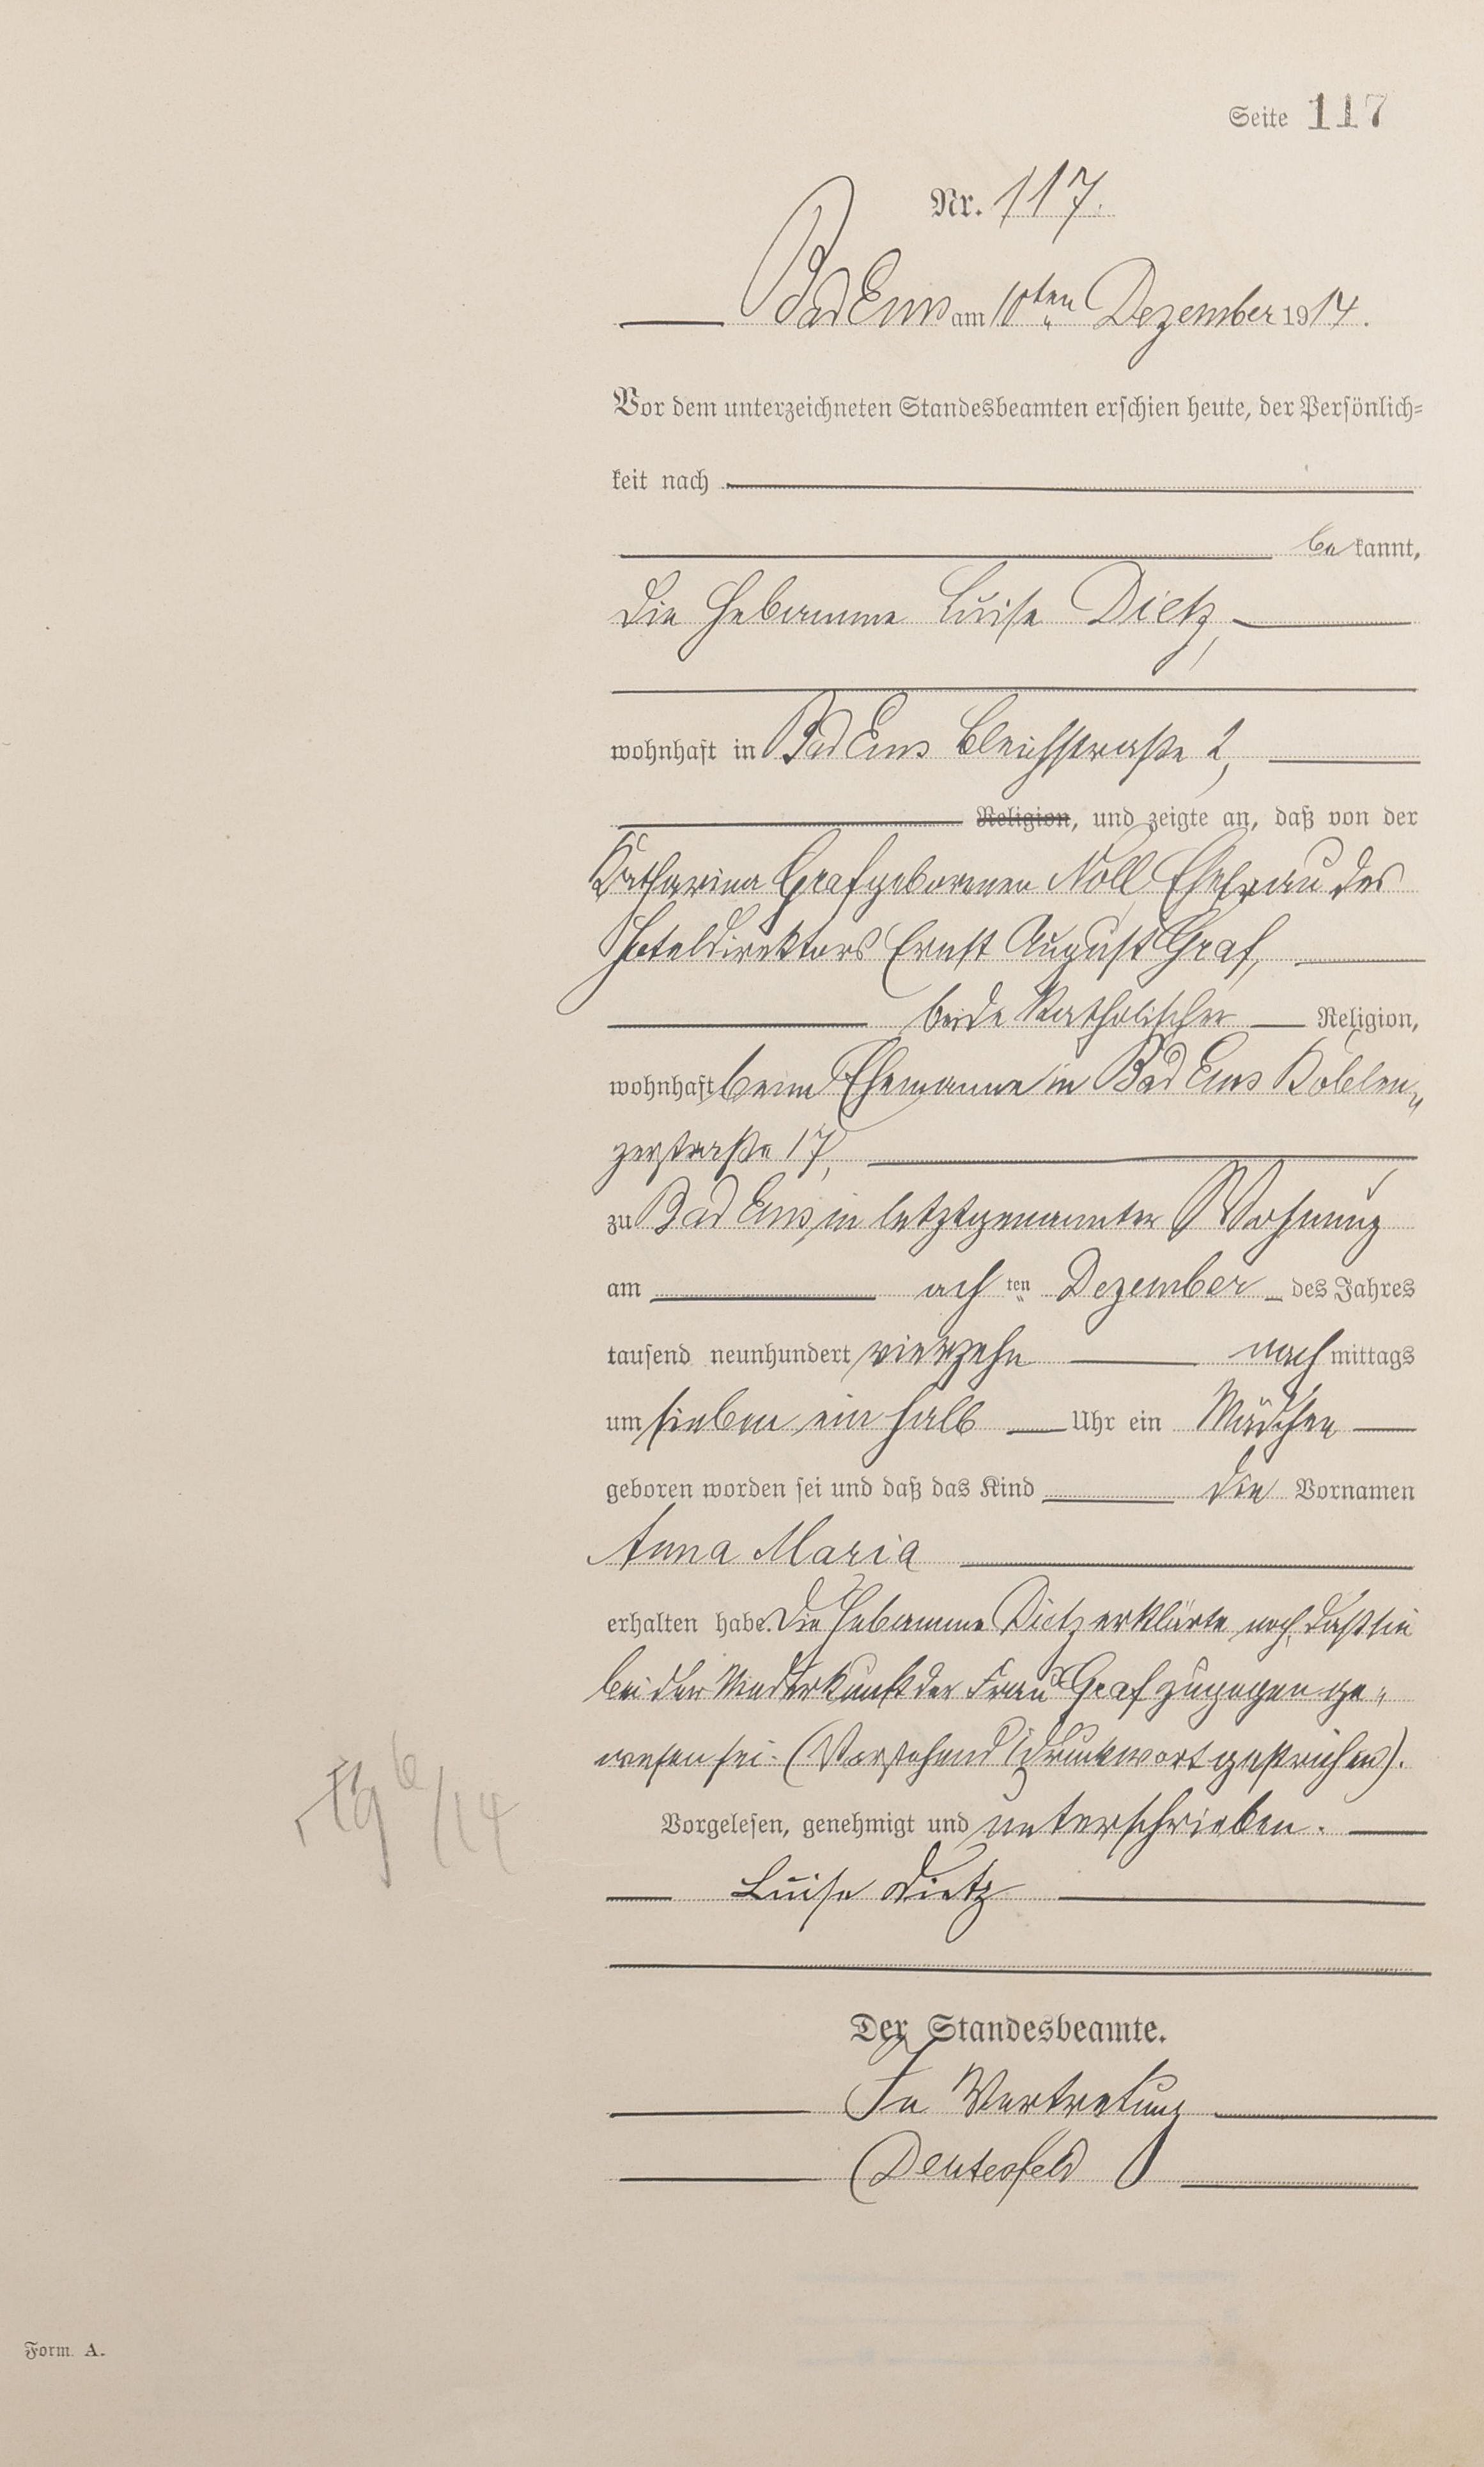 Seite 117
Nr. 117.
Bad Ems am 10ten Dezember 1914.
Vor dem unterzeichneten Standesbeamten erschien heute, der Persönlich=
keit nach
be kannt,
die Hebamme Luise Dietz,
wohnhaft in Bad Ems Bleichstraße 2,
Religion, und zeigte an, daß von der
Katharina Graf geborenen Noll, Ehefrau des
Hoteldirektors Ernst August Graf,
beide katholischer Religion,
wohnhaft beim Ehemanne in Bad Ems Koblen„
zerstraße 17,
zu Bad Ems, in letztgenannter Wohnung
am ach ten Dezember des Jahres
tausend neunhundert vierzehn nach mittags
um sieben ein halb Uhr ein Mädchen
geboren worden sei und daß das Kind die Vornamen
Anna Maria
erhalten habe. Die Hebamme Dietz erklärte noch, daß sie
bei der Niederkunft der Frau Graf zugegen ge„
wesen sei. (Vorstehend 1 Druckwort gestrichen).
Vorgelesen, genehmigt und unterschrieben.
Luise Dietz
Der Standesbeamte.
In Vertretung
6/14
Form. A.